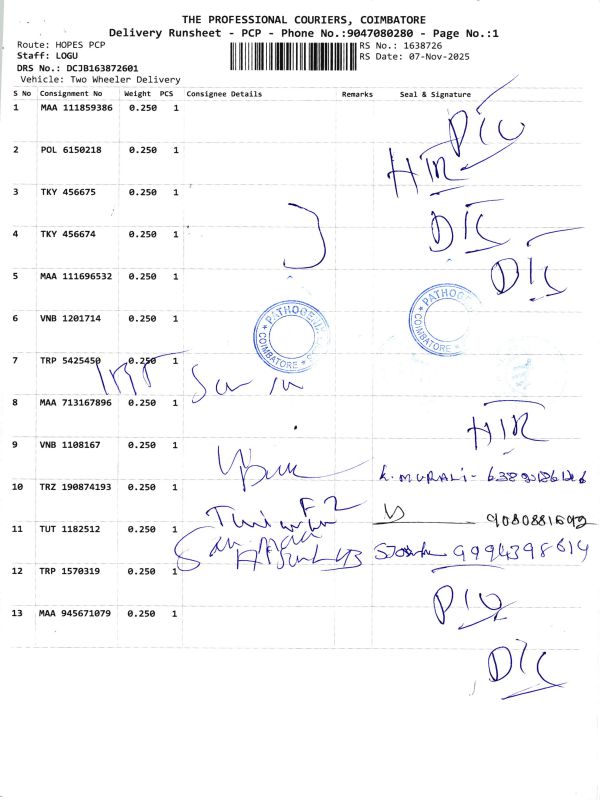 THE PROFESSIONAL COURIERS, COIMBATORE
Delivery Runsheet - PCP - Phone No.:9047080280 - Page No.:1
Route: HOPES PCP
RS No.: 1638726
Staff: LOGU
RS Date: 07-Nov-2025
DRS No.: DCJB163872601
Vehicle: Two Wheeler Delivery
S No Consignment No Weight PCS Consignee Details Remarks Seal & Signature
1 MAA 111859386 0.250 1
2 POL 6150218 0.250 1
3 TKY 456675 0.250 1
4 TKY 456674 0.250 1
DTC
5 MAA 111696532 0.250 1
DTC
6 VNB 1201714 0.250 1
COIMBATORE
COIMBATORE
7 TRP 5425450 0.250 1
8 MAA 713167896 0.250 1
9 VNB 1108167 0.250 1
K. MURALI-
10 TRZ 190874193 0.250 1
F2
11 TUT 1182512 0.250 1
9994398614
12 TRP 1570319 0.250 1
13 MAA 945671079 0.250 1
DTC